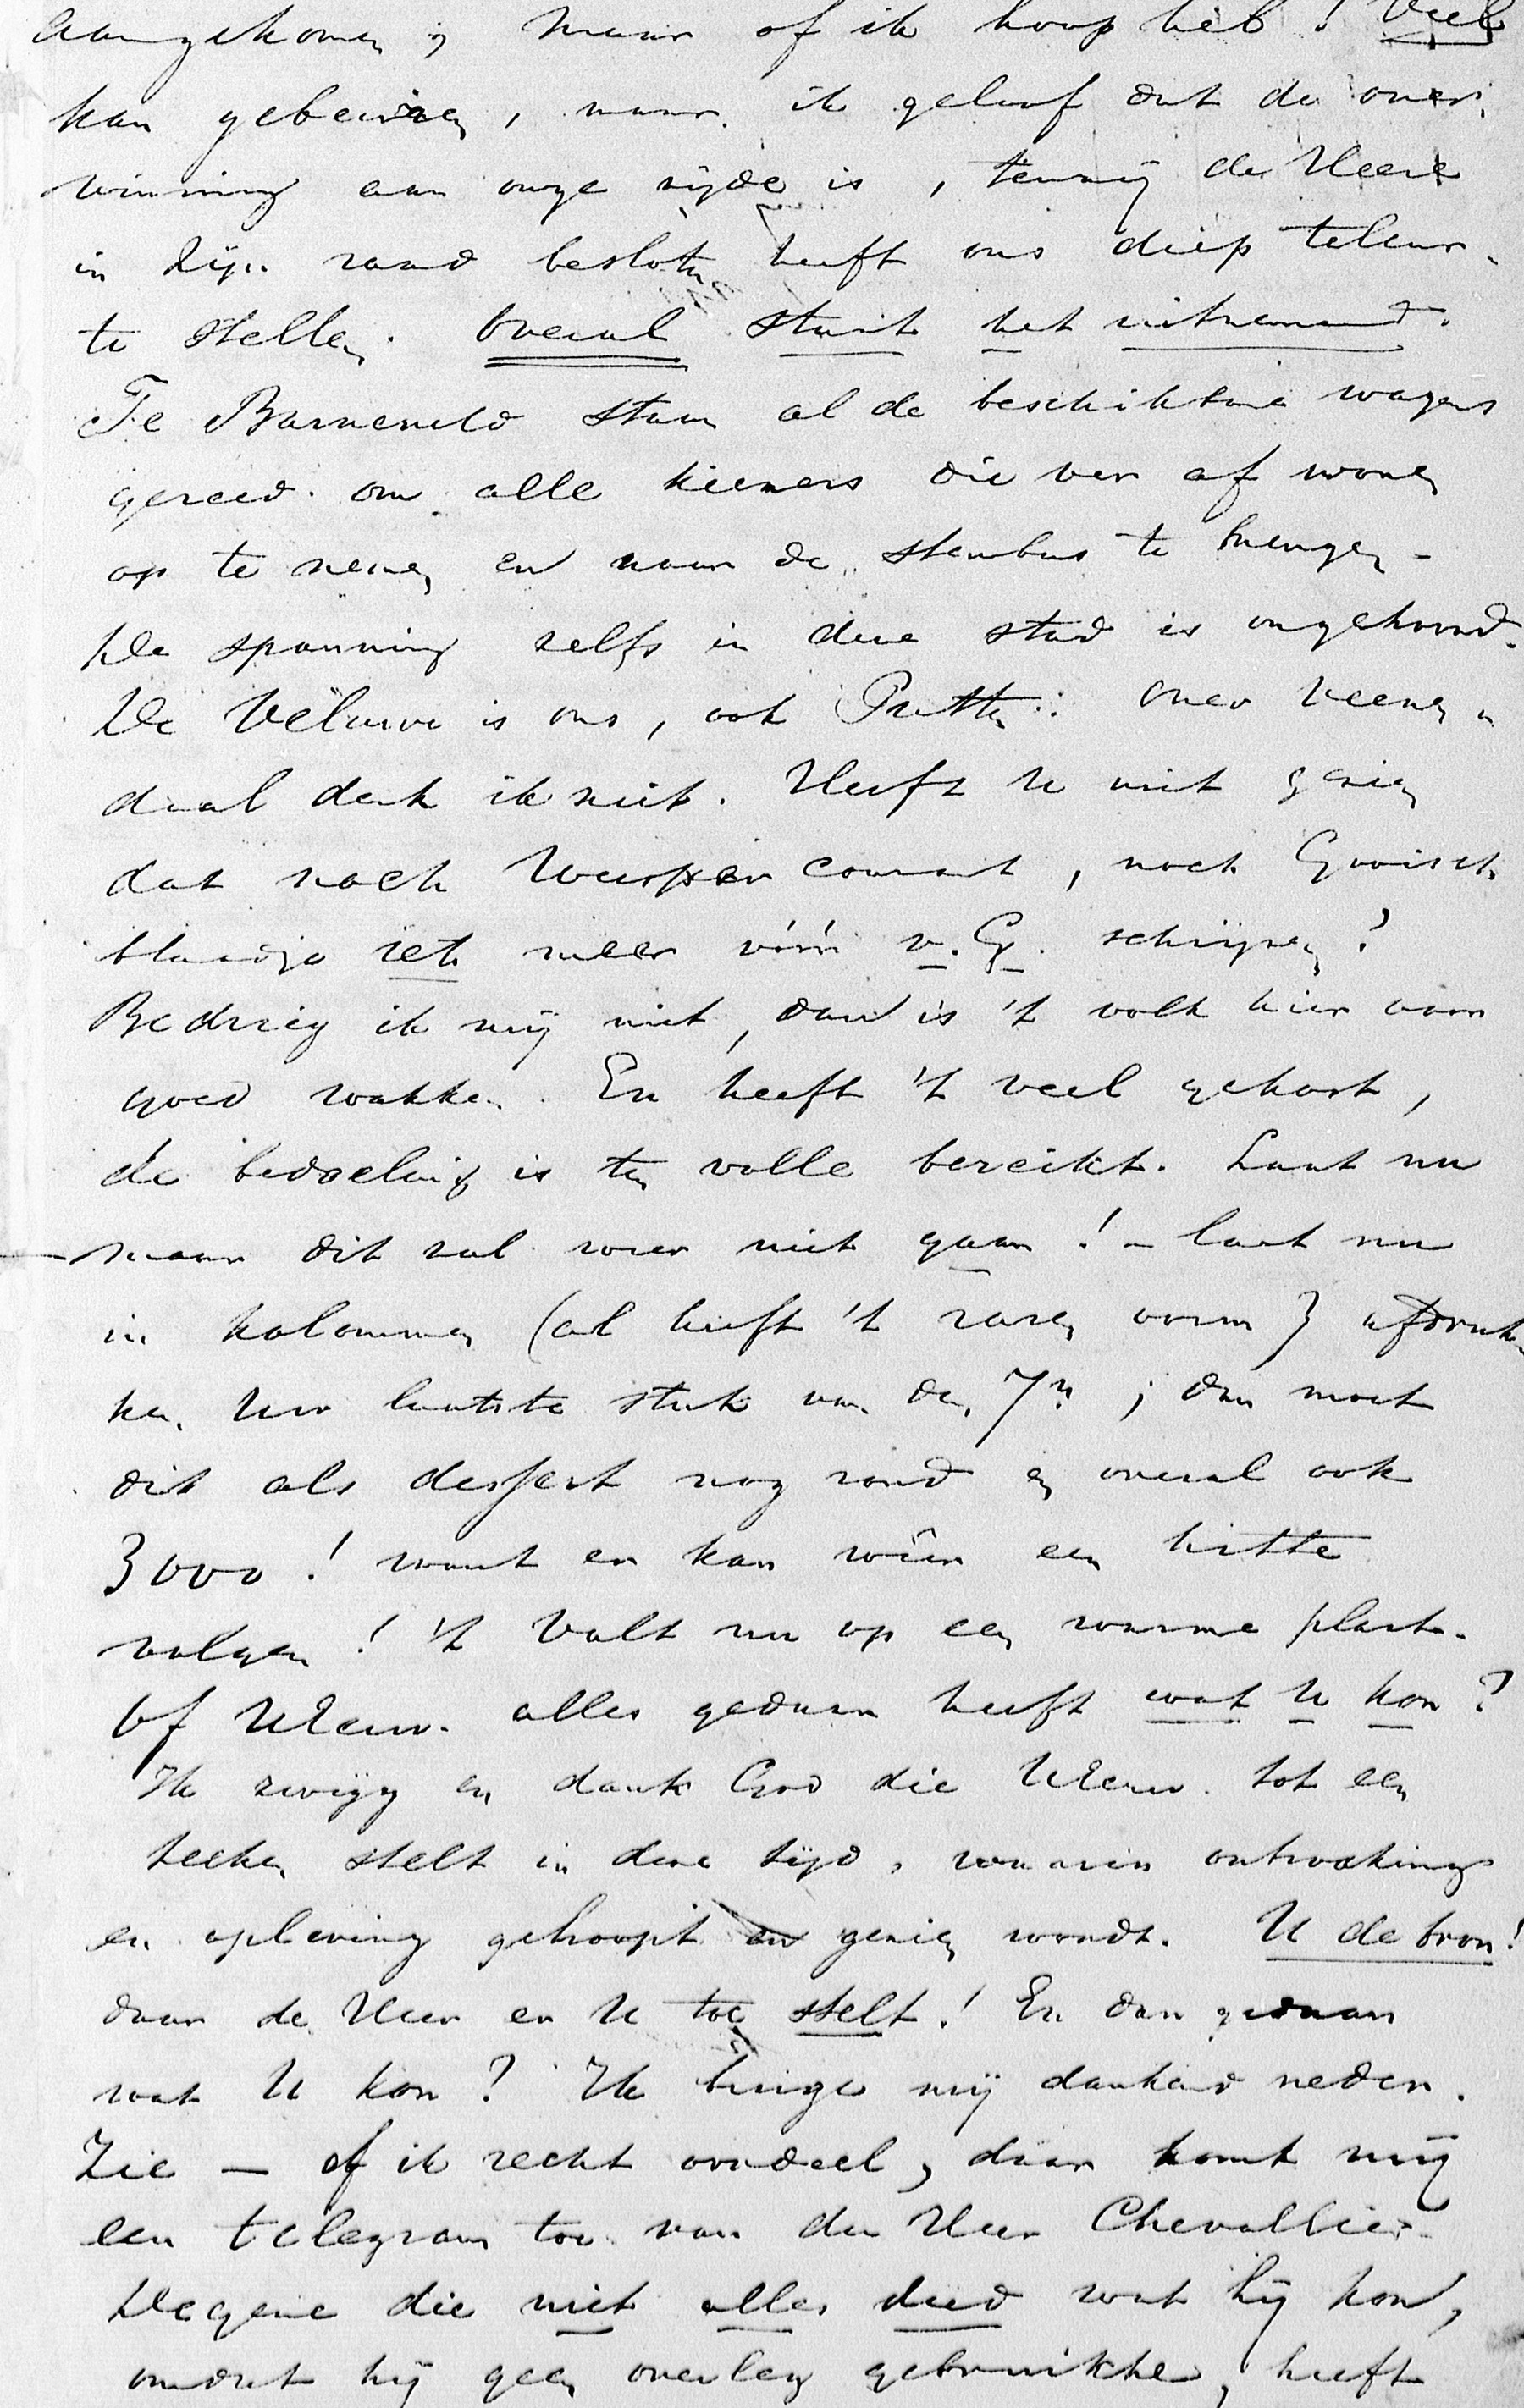 aangekomen is, maar of ik hoop heb! Veel
kan gebeuren, maar ik geloof dat de over,
winning aan onze zijde is, tenzij de Heere
in Zijn raad besloten heeft ons diep teleur-
te stellen. Overal staat het uitnemend.
Te Barneveld staan al de beschikbare wagens
gereed om alle kiezers die ver af wonen
op te nemen en naar de stembus te brengen -
De spanning zelfs in deze stad is ongehoord.
De Veluwe is ons, ook Putten. Over Veenen,
daal denk ik niet. Heeft U niet gezien
dat noch Weesper courant, noch Gooisch
blaadje iets meer vóór v. G. schrijven?
Bedrieg ik mij niet, dan is 't volk hier voor
goed wakker. En heeft 't veel gekost,
de bedoeling is ten volle bereikt. Laat nu
maar dit zal weer niet gaan! - laat nu
in kolommen (al heeft 't rare vorm) afdruk-
ken Uw laatste stuk van den 7n; dan moet
dit als dessert nog rond en overal ook
3000! want er kan wéér een hitte
volgen! 't Valt nu op een warme plaat.
Of UEerw. alles gedaan heeft wat U kon?
Ik zwijg en dank God die UEerw. tot een
teeken stelt in deze tijd, waarin ontwaking
en opleving gehoopt en gezien wordt. U de bron!
daar de Heer er U toe stelt! En dan gedaan
wat U kon? Ik buige mij dankend neder.
Zie — of ik recht oordeel, daar komt mij
een telegram toe van den Heer Chevallier.
Degene die niet alles deed wat hij kon,
omdat hij geen overleg gebruikte, heeft